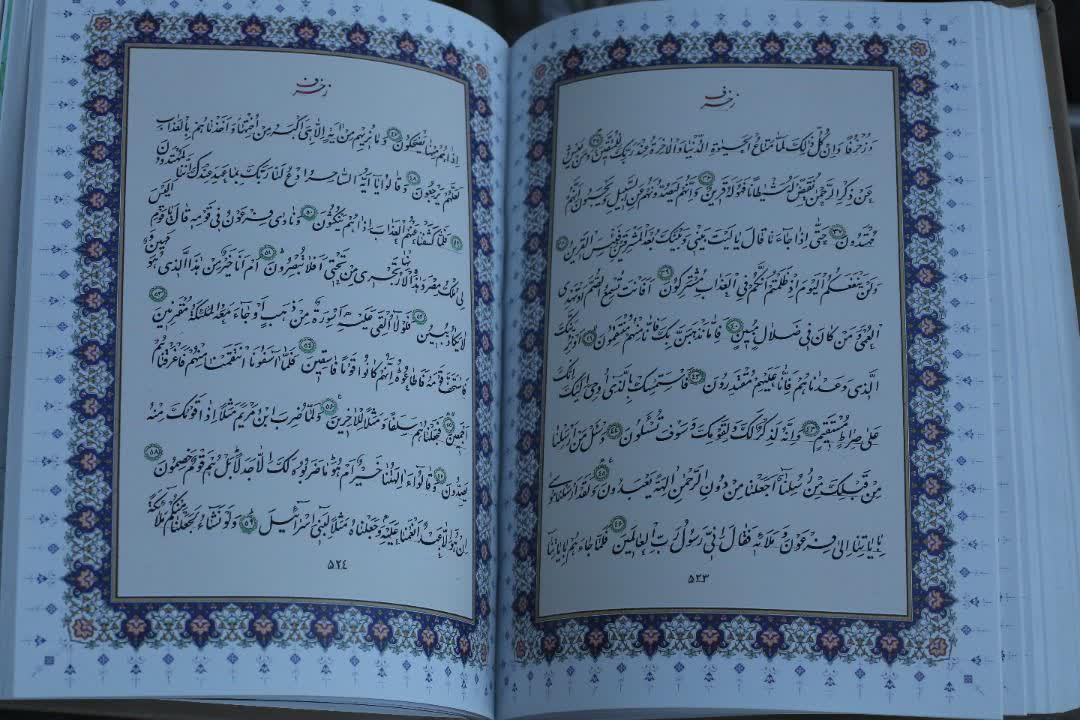 زخرف
وَ زُخْرُفًا وَ اِنْ كُلُّ ذٰلِكَ لَمَّا مَتَاعُ الْحَيٰوةِ الدُّنْيَا وَ الْاٰخِرَةُ عِنْدَ رَبِّكَ لِلْمُتَّقِينَ ۳۵ وَ مَنْ يَعْشُ
عَنْ ذِكْرِ الرَّحْمٰنِ نُقَيِّضْ لَهُ شَيْطَانًا فَهُوَ لَهُ قَرِينٌ ۳۶ وَ اِنَّهُمْ لَيَصُدُّونَهُمْ عَنِ السَّبِيلِ وَ يَحْسَبُونَ اَنَّهُمْ
مُهْتَدُونَ ۳۷ حَتّٰى اِذَا جَاءَنَا قَالَ يَا لَيْتَ بَيْنِى وَ بَيْنَكَ بُعْدَ الْمَشْرِقَيْنِ فَبِئْسَ الْقَرِينُ ۳۸
وَ لَنْ يَنْفَعَكُمُ الْيَوْمَ اِذْ ظَلَمْتُمْ اَنَّكُمْ فِى الْعَذَابِ مُشْتَرِكُونَ ۳۹ اَفَاَنْتَ تُسْمِعُ الصُّمَّ اَوْ تَهْدِى
الْعُمْىَ وَ مَنْ كَانَ فِى ضَلَالٍ مُبِينٍ ۴۰ فَاِمَّا نَذْهَبَنَّ بِكَ فَاِنَّا مِنْهُمْ مُنْتَقِمُونَ ۴۱ اَوْ نُرِيَنَّكَ
الَّذِى وَعَدْنَاهُمْ فَاِنَّا عَلَيْهِمْ مُقْتَدِرُونَ ۴۲ فَاسْتَمْسِكْ بِالَّذِى اُوحِىَ اِلَيْكَ اِنَّكَ
عَلٰى صِرَاطٍ مُسْتَقِيمٍ ۴۳ وَ اِنَّهُ لَذِكْرٌ لَكَ وَ لِقَوْمِكَ وَ سَوْفَ تُسْئَلُونَ ۴۴ وَ سْئَلْ مَنْ اَرْسَلْنَا
مِنْ قَبْلِكَ مِنْ رُسُلِنَا اَجَعَلْنَا مِنْ دُونِ الرَّحْمٰنِ اٰلِهَةً يُعْبَدُونَ ۴۵ وَ لَقَدْ اَرْسَلْنَا مُوسٰى
بِاٰيَاتِنَا اِلٰى فِرْعَوْنَ وَ مَلَائِهِ فَقَالَ اِنِّى رَسُولُ رَبِّ الْعَالَمِينَ ۴۶ فَلَمَّا جَاءَهُمْ بِاٰيَاتِنَا
۵۲۳
زخرف
اِذَا هُمْ مِنْهَا يَضْحَكُونَ ۴۷ وَ مَا نُرِيهِمْ مِنْ اٰيَةٍ اِلَّا هِىَ اَكْبَرُ مِنْ اُخْتِهَا وَ اَخَذْنَاهُمْ بِالْعَذَابِ
لَعَلَّهُمْ يَرْجِعُونَ ۴۸ وَ قَالُوا يَا اَيُّهَ السَّاحِرُ ادْعُ لَنَا رَبَّكَ بِمَا عَهِدَ عِنْدَكَ اِنَّنَا لَمُهْتَدُونَ
۴۹ فَلَمَّا كَشَفْنَا عَنْهُمُ الْعَذَابَ اِذَا هُمْ يَنْكُثُونَ ۵۰ وَ نَادٰى فِرْعَوْنُ فِى قَوْمِهِ قَالَ يَا قَوْمِ اَلَيْسَ
لِى مُلْكُ مِصْرَ وَ هٰذِهِ الْاَنْهَارُ تَجْرِى مِنْ تَحْتِى اَفَلَا تُبْصِرُونَ ۵۱ اَمْ اَنَا خَيْرٌ مِنْ هٰذَا الَّذِى هُوَ مَهِينٌ
وَ لَا يَكَادُ يُبِينُ ۵۲ فَلَوْلَا اُلْقِىَ عَلَيْهِ اَسْوِرَةٌ مِنْ ذَهَبٍ اَوْ جَاءَ مَعَهُ الْمَلٰئِكَةُ مُقْتَرِنِينَ ۵۳
فَاسْتَخَفَّ قَوْمَهُ فَاَطَاعُوهُ اِنَّهُمْ كَانُوا قَوْمًا فَاسِقِينَ ۵۴ فَلَمَّا اٰسَفُونَا انْتَقَمْنَا مِنْهُمْ فَاَغْرَقْنَاهُمْ
اَجْمَعِينَ ۵۵ فَجَعَلْنَاهُمْ سَلَفًا وَ مَثَلًا لِلْاٰخِرِينَ ۵۶ وَ لَمَّا ضُرِبَ ابْنُ مَرْيَمَ مَثَلًا اِذَا قَوْمُكَ مِنْهُ
يَصِدُّونَ ۵۷ وَ قَالُوا ءَاٰلِهَتُنَا خَيْرٌ اَمْ هُوَ مَا ضَرَبُوهُ لَكَ اِلَّا جَدَلًا بَلْ هُمْ قَوْمٌ خَصِمُونَ ۵۸
اِنْ هُوَ اِلَّا عَبْدٌ اَنْعَمْنَا عَلَيْهِ وَ جَعَلْنَاهُ مَثَلًا لِبَنِى اِسْرَائِيلَ ۵۹ وَ لَوْ نَشَاءُ لَجَعَلْنَا مِنْكُمْ مَلٰئِكَةً
۵۲۴